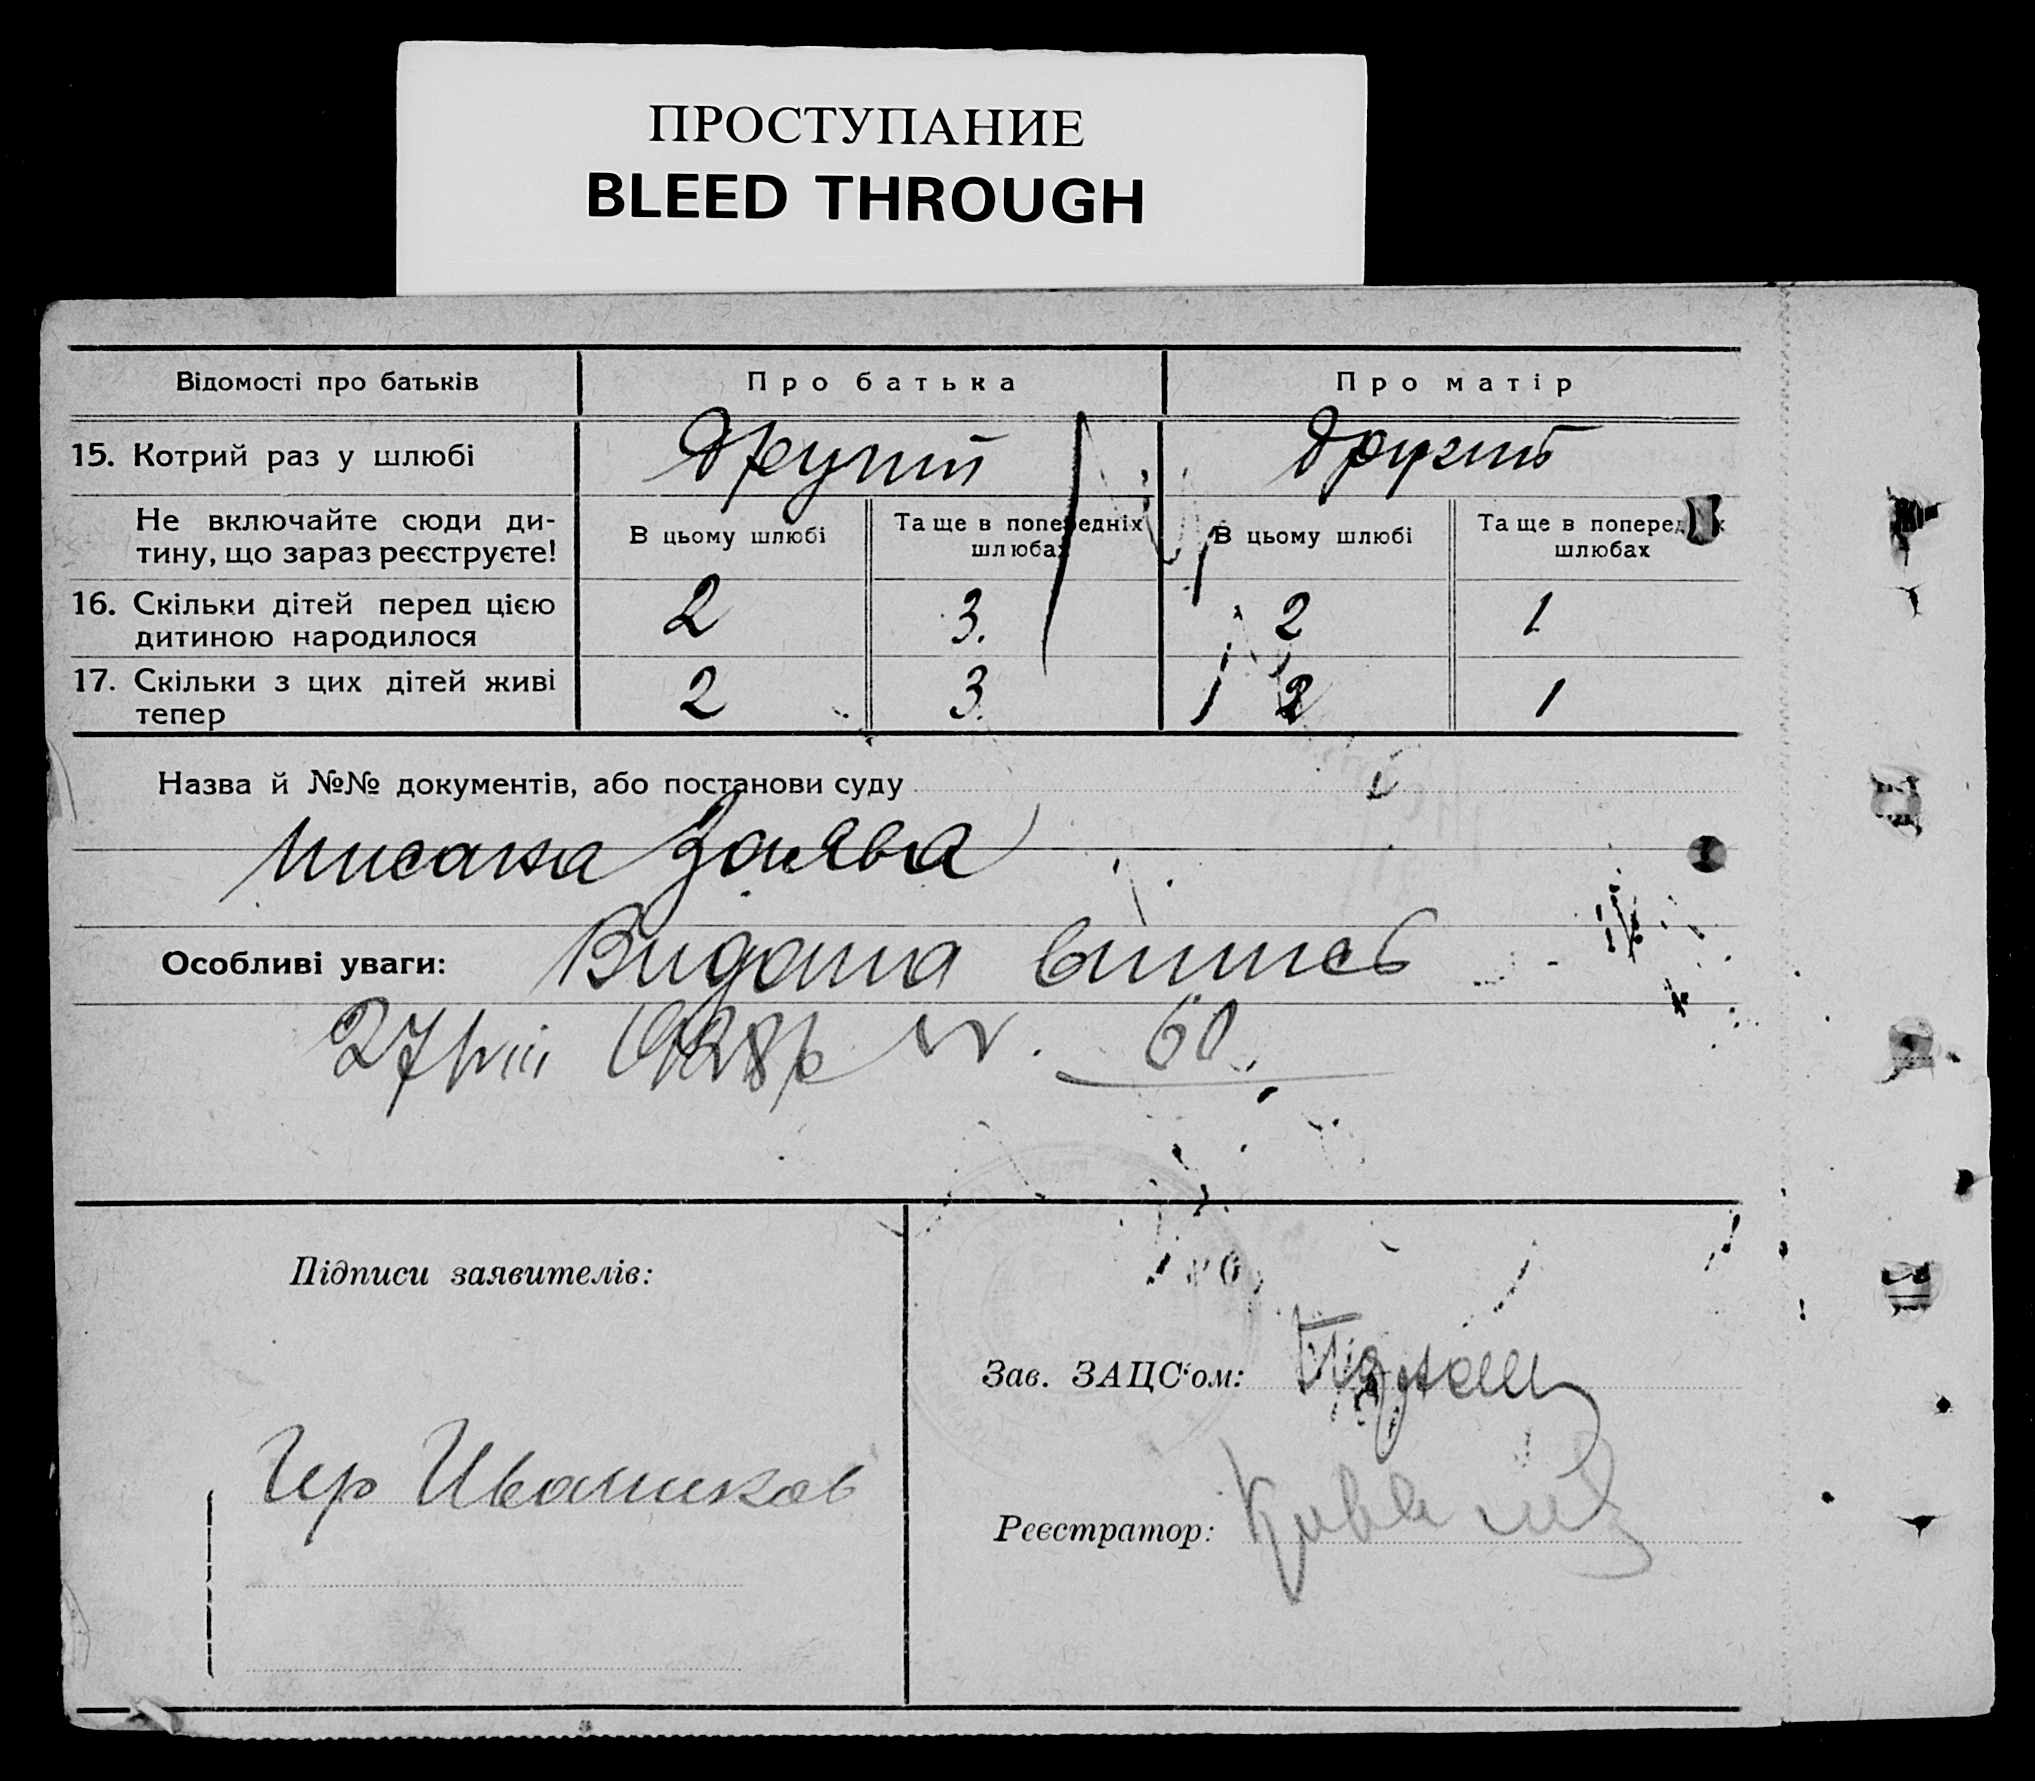 ПРОСТУПАНИЕ
BLEED THROUGH
Відомості про батьків
Про батька
Про матір
15. Котрий раз у шлюбі
другий
другий
Не включайте сюди ди-
тину, що зараз реєструєте!
В цьому шлюбі
Та ще в попередніх
шлюбах
В цьому шлюбі
Та ще в попередніх
шлюбах
16. Скільки дітей перед цією
дитиною народилося
2
3.
2
1
17. Скільки з цих дітей живі
тепер
2
3.
2
1
Назва й №№ документів, або постанови суду
заява
Особливі уваги: Видана випись
27/VIII 1928р N. 60.
Підписи заявителів:
Зав. ЗАЦС'ом:
Гр Иваников
Реєстратор: